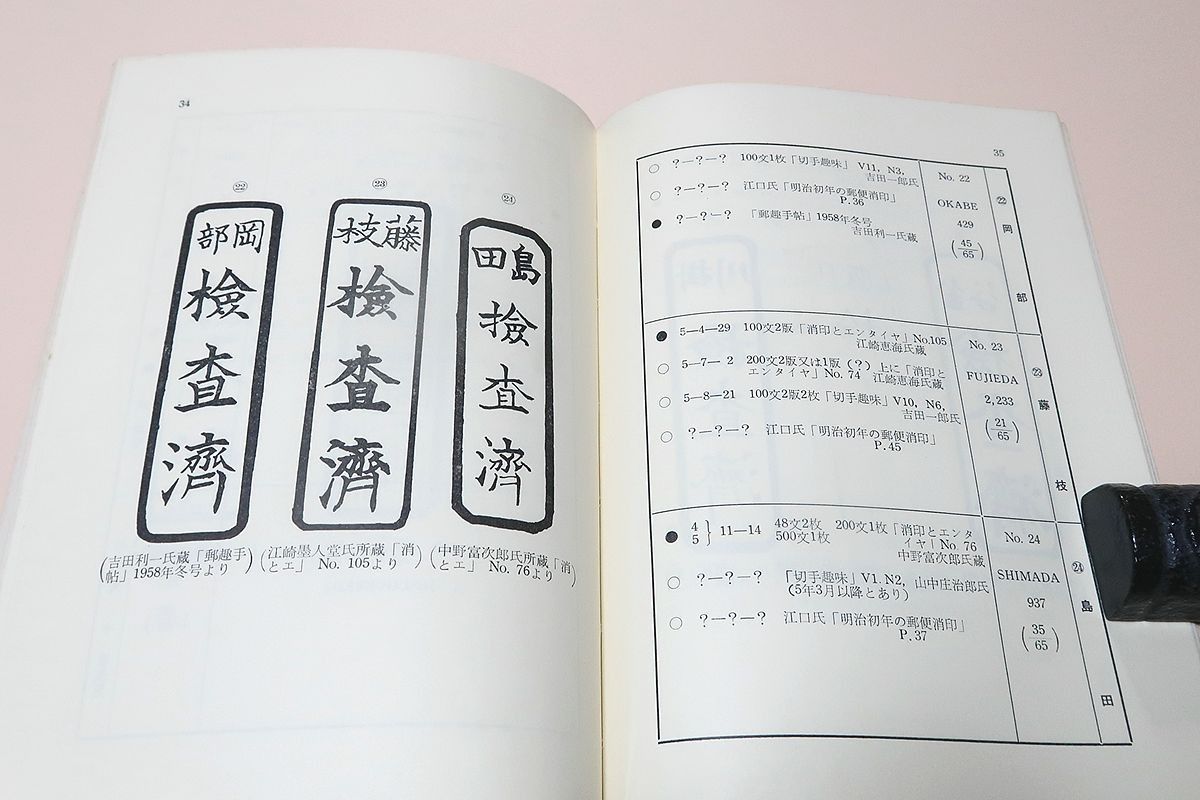 34
㉒
㉓
㉔
部岡
檢
査
濟
枝藤
檢
査
濟
田島
撿
査
濟
(吉田利一氏蔵「郵趣手
帖」1958年冬号より)
(江崎墨人堂氏所蔵「消
とエ」 No. 105より)
(中野富次郎氏所蔵「消
とエ」 No. 76より)
35
○ ?—?—? 100文1枚「切手趣味」 V11, N3,
吉田一郎氏
○ ?—?—? 江口氏「明治初年の郵便消印」
P.36
● ?—?—? 「郵趣手帖」1958年冬号
吉田利一氏蔵
No. 22
OKABE
429
(45/65)
㉒
岡
部
● 5—4—29 100文2版「消印とエンタイヤ」No.105
江崎恵海氏蔵
○ 5—7— 2 200文2版又は1版(?)上に「消印と
エンタイヤ」No. 74 江崎恵海氏蔵
○ 5—8—21 100文2版2枚「切手趣味」V10, N6,
吉田一郎氏
○ ?—?—? 江口氏「明治初年の郵便消印」
P.45
No. 23
FUJIEDA
2,233
(21/65)
㉓
藤
枝
● 4
5 } 11—14 48文2枚 200文1枚「消印とエンタ
500文1枚 イヤ」No. 76
中野富次郎氏蔵
○ ?—?—? 「切手趣味」V1. N2, 山中庄治郎氏
(5年3月以降とあり)
○ ?—?—? 江口氏「明治初年の郵便消印」
P.37
No. 24
SHIMADA
937
(35/65)
㉔
島
田